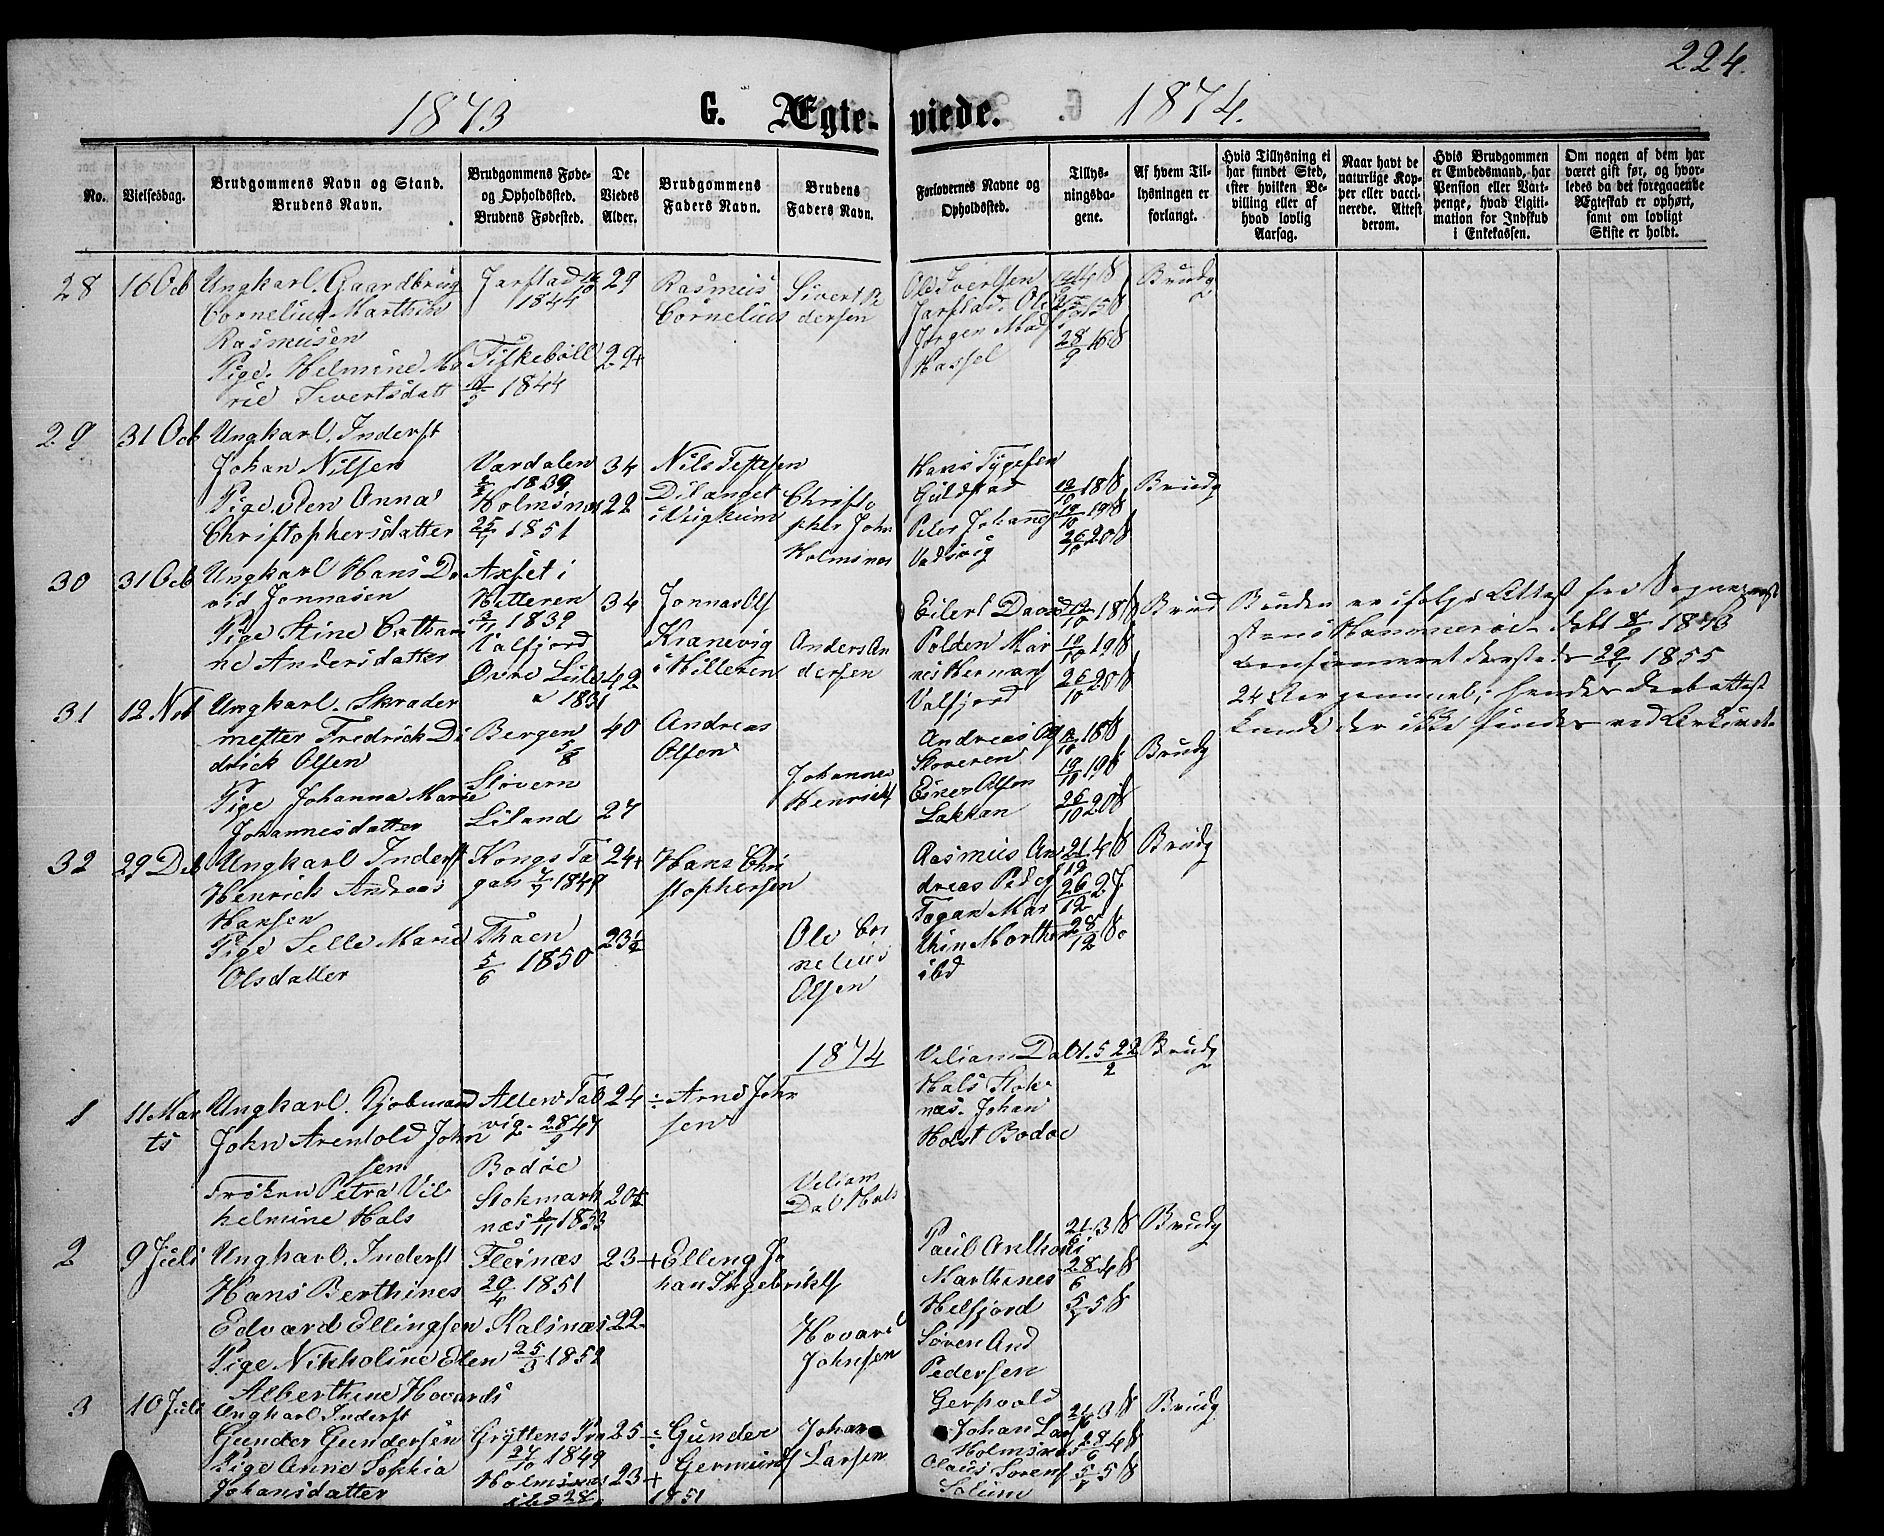 224.
1873 G. Ægte- viede. 1874.
No.
Vielsesdag.
Brudgommens Navn og Stand.
Brudens Navn.
Brudgommens Føde-
og Opholdssted.
Brudens Fødested.
De
Viedes
Alder.
Brudgommens
Faders Navn.
Brudens
Faders Navn.
Forlovernes Navne og
Opholdssted.
Tillys-
ningsda-
gene.
Af hvem Til-
lysningen er
forlangt.
Hvis Tillysning ei
har fundet Sted,
efter hvilken Be-
villing eller af
hvad lovlig
Aarsag.
Naar havt de
naturlige Kop-
per eller vacci-
nerede. Attest
derom.
Hvis Brudgommen
er Embedsmand, har
Pension eller Vart-
penge, hvad Ligiti-
mation for Indskud
i Enkekassen.
Om nogen af dem har
været gift før, og hvor-
ledes da det foregaaende
Ægteskab er ophørt,
samt om lovligt
Skifte er holdt.
28
16 Oct
Ungkarl. Gaardbrug
Cornelius Marthin
Rasmusen
Pige. Helmine Ma
rie Sivertsdatt
Jarstad 16/10
1844
Fiskebøll
9/5 1844
29
29+
Rasmus
Cornelius
Sivert Pe
dersen
Ole Iversen
Jarstad. Ole
Jørgen Mads
Hassel
14/9 14 S
15 S
28/9 16 S
Brudg
29
31 Oct
Ungkarl. Inderst
Johan Nilsen
Pige. Elen Anna
Christophersdatter
Værdalen
1839
Holmsnæs
25/1 1851
34
22
Nils Tettesen
Christo
pher John
Holmsnæs
Hans Tygesen
Guldstad
Peter Johans
Vadsvig
12/10 18 S
19/10 19 S
26/10 20 S
Brudg
30
31 Oct
Ungkarl Hans Da
vid Jonnasen
Pige Stine Catha
ne Andersdatter
Axset i
Hitteren
2/11 1839
Valfjord
Øvre Lille
1831
34
42
Jonnas Ols
Kranevig
i Hitteren
Anders An
dersen
Eilert David
Polden Mar
nis Hernans
Valfjord
12/10 18 S
19/10 19 S
26/10 20 S
Brud
Bruden er ifølge Attest fra Sognepræ
sten i Hammerøe. datt 8/9 1873
Confirmeret dersteds 29/1855
24 Aar gammel; hendes Daabattest
kunde der ikke findes ved Kirken.
31
12 Nov
Ungkarl. Skræder
mester Fredrick Di
drick Olsen
Pige Johanna Marie
Johannesdatter
Bergen
5/8
Sløveren
Liland
40
27
Andreas
Olsen
Johannes
Henriks
Andreas Og
Skoveren
Einer Olsen
Lakken
12/10 18 S
19/10 19 S
26/10 20 S
Brudg
32
29 Deb
Ungkarl Inderst
Henrich Andreas
Hansen
Pige Selle Marie
Olsdatter
Kongs Ta
gan 7/7 1849
Thaen
5/6 1850
24+
23½
Hans Chri
stophersen
Ole Cor
nelius
Olsen
Rasmus An
dreas Peders
Tagan Mar
thin Morthen
ibd
21/12 4 S
26/12 2 J
28/12 S.
Brudg
1874
1
11 Mar
ts
Ungkarl. Kjøbmand
John Arentold John
sen
Frøken Petra Vil
helmine Hals
Alten Tal
vig- 28/9 47
Bodøe
Stokmark
næs 2/11 1853
24 ÷
20+
Arnt John
sen
Viliam
Dal Hals
Viliam Dal
Hals Stok
næs. Johan
Holst Bodøe
1. 5 22/2
Brudg
2
9 Juli
Ungkarl. Inderst
Hans Berthines
Edvard Ellingsen
Pige Nikholine Elen
Alberthine Hovards
Flesnæs
20/4 1851
Kalsnæs
25/3 1852
23+
22
Elling Jo
han Ingebrikts
Hovard
Johnsen
Paul Anthoni
Marthines
Helfjord
Søren And
Pedersen
Gerstvold
21/6 3 S
28/6 4 S
5/7 5 S
Brudg
3
10 Juli
Ungkarl Inderst
Gunder Gundersen
Pige Anne Sophia
Johansdatter
Gryttens Præ
27/10 1849
Holmsnæs
28
1851
25 ÷
23+
Gunder
Germunds
Johan
Larsen
Johan Lars
Holmsnæs
Claus Sørens
Solum
21/6 3 S
28/6 4 S
5/7 5 S
Brudg